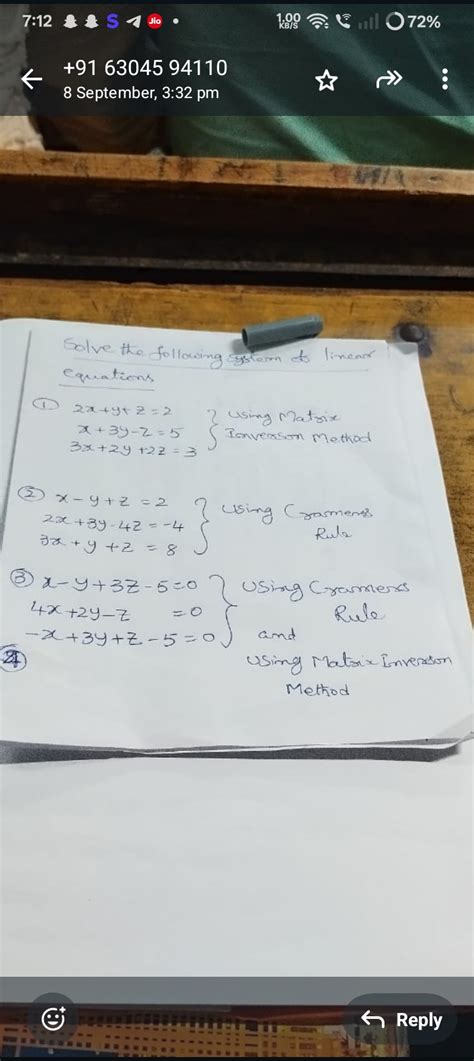 7:12 S Jio • 1.00 KB/S 72%
+91 63045 94110
8 September, 3:32 pm
Solve the following system of linear
equations
① 2x+y+z=2
x+3y-z=5
3x+2y+2z=3
Using Matrix
Inversion Method
② x-y+z=2
2x+3y-4z=-4
3x+y+z=8
Using Cramers
Rule
③ x-y+3z-5=0
4x+2y-z =0
-x+3y+z-5=0
Using Cramers
Rule
and
Using Matrix Inversion
Method
④
Reply